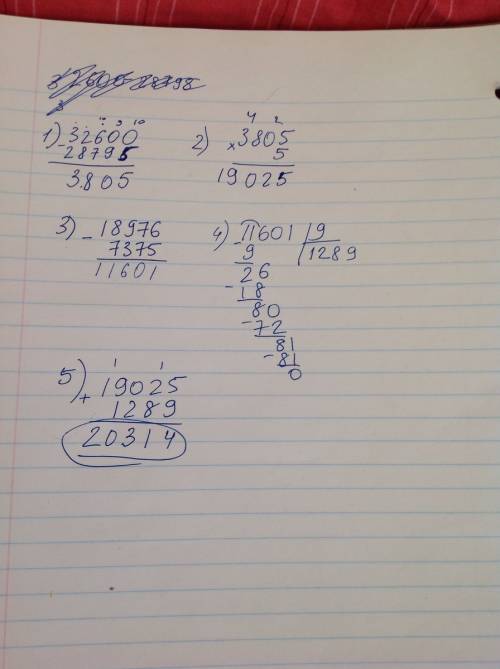 1) -32600
28795
3805
2) ×3805
5
19025
3) -18976
7375
11601
4) -11601 | 9
9 1289
26
-18
80
-72
81
-81
0
5) + 19025
1289
20314